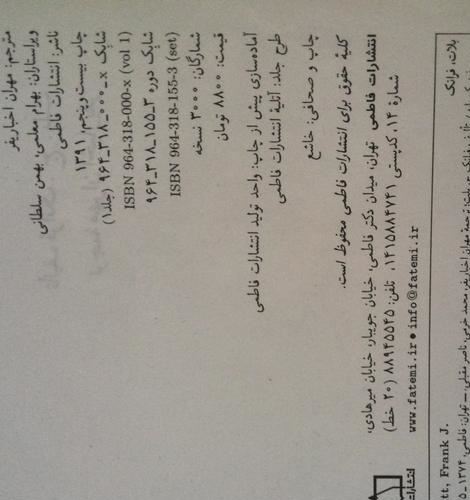 مترجم: مهران اخباریفر
ویراستاران: بهرام معلمی، بهمن سلطانی
ناشر: انتشارات فاطمی
چاپ بیست‌وپنجم، ۱۳۹۱
شابک x_۰۰۰_۳۱۸_۹۶۴ (جلد۱)
ISBN 964-318-000-x (vol 1)
شابک دوره ۳_۱۵۵_۳۱۸_۹۶۴
ISBN 964-318-155-3 (set)
شمارگان: ۳۰۰۰ نسخه
قیمت: ۸۸۰۰ تومان
آماده‌سازی پیش از چاپ: واحد تولید انتشارات فاطمی
طرح جلد: آتلیهٔ انتشارات فاطمی
چاپ و صحافی: خاشع
کلیهٔ حقوق برای انتشارات فاطمی محفوظ است.
انتشارات فاطمی تهران، میدان دکتر فاطمی، خیابان جویبار، خیابان میرهادی،
شمارهٔ ۱۴، کدپستی ۱۴۱۵۸۸۴۷۴۱، تلفن: ۸۸۹۴۵۵۴۵ (۲۰ خط)
www.fatemi.ir • info@fatemi.ir
انتشارات
بلات، فرانک
tt, Frank J.